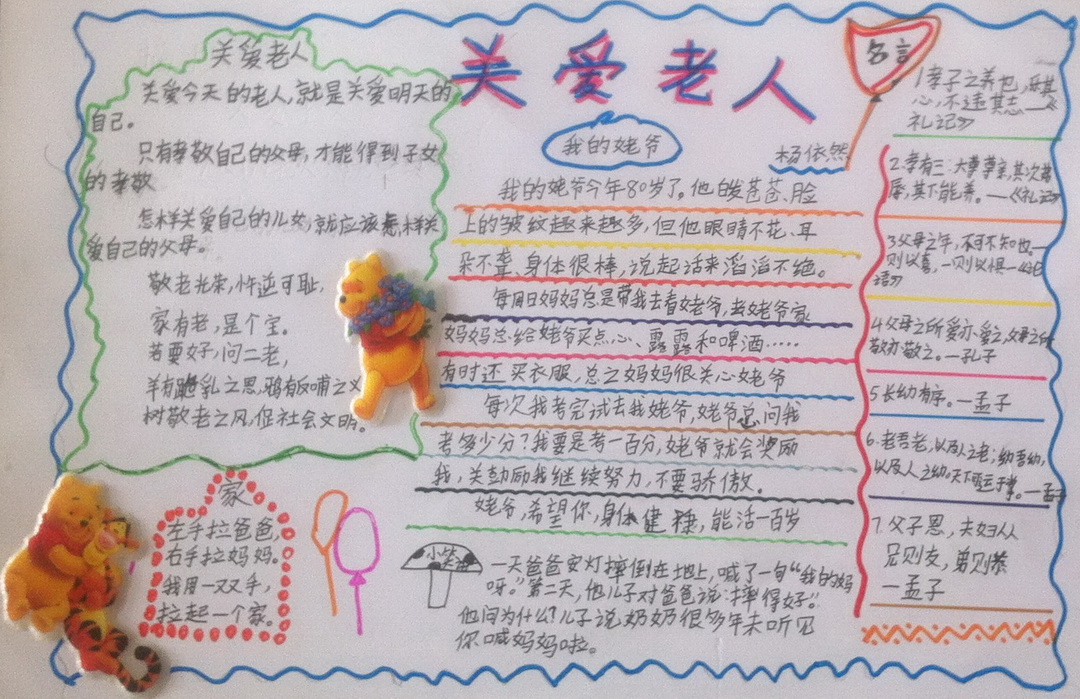 关爱老人
关爱今天的老人，就是关爱明天的
自己。
只有孝敬自己的父母，才能得到子女
的孝敬
怎样关爱自己的儿女，就应该怎样关
爱自己的父母。
敬老光荣，忤逆可耻，
家有老，是个宝。
若要好，问二老，
羊有跪乳之恩，鸦有反哺之义
树敬老之风，促社会文明。
家
左手拉爸爸，
右手拉妈妈。
我用一双手，
拉起一个家。
关爱老人
我的姥爷
杨依然
我的姥爷今年80岁了。他白发苍苍、脸
上的皱纹越来越多，但他眼睛不花、耳
朵不聋、身体很棒，说起话来滔滔不绝。
每周日妈妈总是带我去看姥爷，去姥爷家
妈妈总给姥爷买点心、露露和啤酒……
有时还买衣服，总之妈妈很关心姥爷
每次我考完试去我姥爷，姥爷总问我
考多少分？我要是考一百分，姥爷就会奖励
我，关鼓励我继续努力，不要骄傲。
姥爷，希望你，身体健穗，能活一百岁
小笑话
一天爸爸安灯摔倒在地上，喊了一句“我的妈
呀。”第二天，他儿子对爸爸说：摔得好”
他问为什么？儿子说奶奶很多年未听见
你喊妈妈啦。
名言
1孝子之养也，乐其
心，不违其志—《
礼记》
2.孝有三：大尊尊亲，其次弗
辱，其下能养。—《礼记》
3父母之年，不可不知也。一
则以喜，一则以惧—《论
语》
4父母之所爱亦爱之，父母之所
敬亦敬之。—孔子
5长幼有序。—孟子
6.老吾老，以及人之老；幼吾幼，
以及人之幼，天下可运于掌。—孟子
7.父子恩，夫妇从
兄则友，弟则恭
—孟子